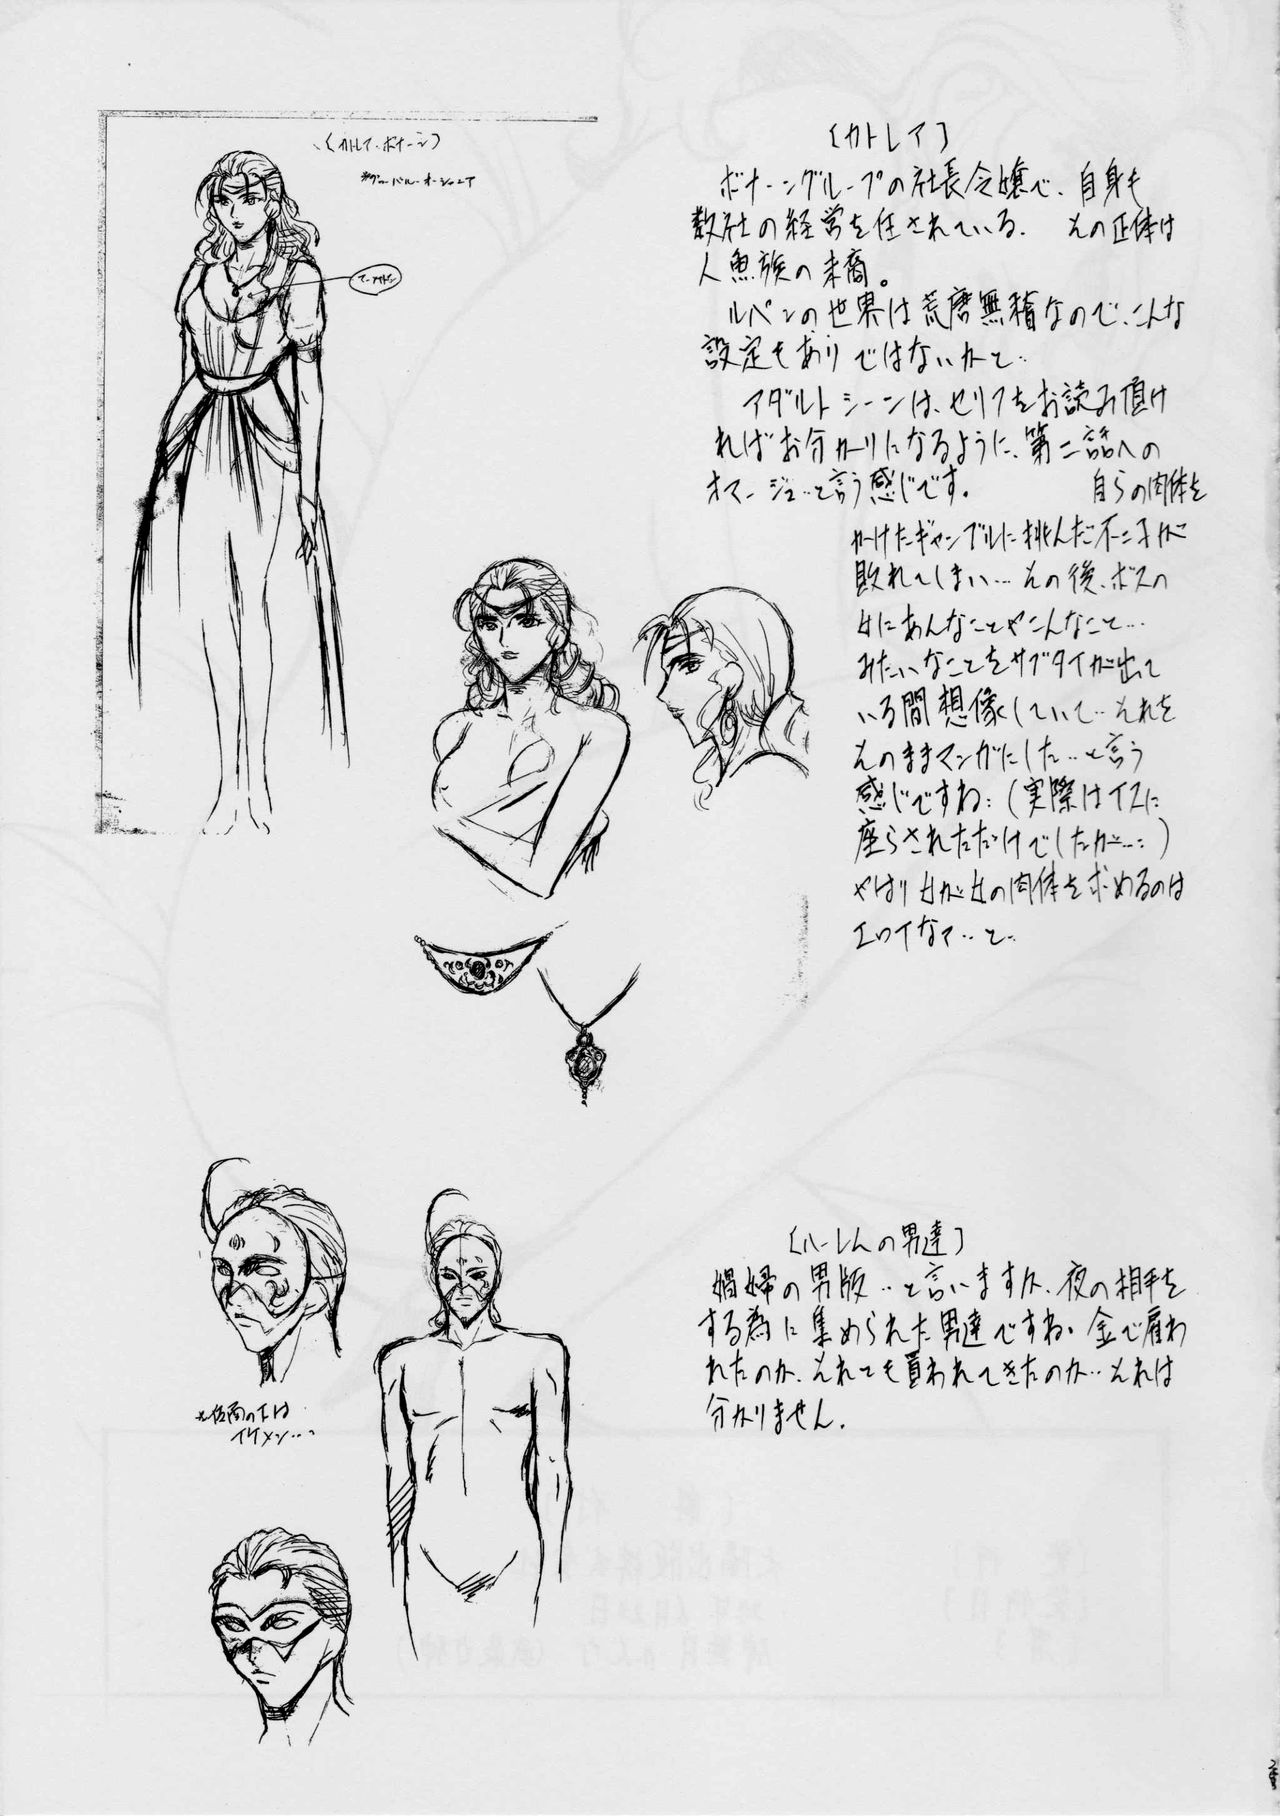 〔カトレア・ボナーン〕
〔カトレア〕
ボナーングループの社長令嬢で、自身も
数社の経営を任されている。その正体は
人魚族の末裔。
ルパンの世界は荒唐無稽なので、こんな
設定もありではないかと‥
アダルトシーンは、セリフをお読み頂け
ればお分かりになるように、第二話への
オマージュ‥と言う感じです。自らの肉体を
かけたギャンブルに挑んだ不二子が
敗れてしまい…その後、ボスの
女にあんなことやこんなこと…
みたいなことをサブタイが出て
いる間想像していて‥それを
そのままマンガにした‥と言う
感じですね:(実際はイスに
座らされただけでしたが…:)
やはり女が女の肉体を求めるのは
エロイなァ‥と‥
〔ハーレムの男達〕
娼婦の男版‥と言いますか、夜の相手を
する為に集められた男達ですね。金で雇わ
れたのか、それとも買われてきたのか‥それは
分かりません。
※仮面の下は
イケメン…